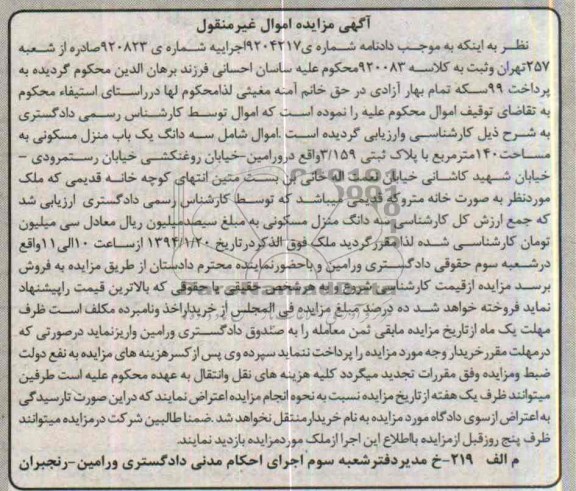 آگهی مزایده اموال غیرمنقول
نظر به اینکه به موجب دادنامه شماره ی۹۲۰۴۲۱۷اجراییه شماره ی ۹۲۰۸۲۳صادره از شعبه
۲۵۷تهران وثبت به کلاسه ۹۲۰۰۸۳محکوم علیه ساسان احسانی فرزند برهان الدین محکوم گردیده به
پرداخت ۹۹سکه تمام بهار آزادی در حق خانم آمنه مغیثی لذامحکوم لها درراستای استیفاء محکوم
به تقاضای توقیف اموال محکوم علیه را نموده است که اموال توسط کارشناس رسمی دادگستری
به شرح ذیل کارشناسی وارزیابی گردیده است .اموال شامل سه دانگ یک باب منزل مسکونی به
مساحت۱۴۰مترمربع با پلاک ثبتی ۳/۱۵۹واقع درورامین-خیابان روغنکشی خیابان رستمرودی –
خیابان شهید کاشانی خیابان نعمت اله خانی بن بست متین انتهای کوچه خانه قدیمی که ملک
موردنظر به صورت خانه متروکه قدیمی میباشد که توسط کارشناس رسمی دادگستری ارزیابی شد
که جمع ارزش کل کارشناسی سه دانگ منزل مسکونی به مبلغ سیصدمیلیون ریال معادل سی میلیون
تومان کارشناسی شده لذامقررگردید ملک فوق الذکردرتاریخ ۱۳۹۴/۱/۲۰ ازساعت ۱۰الی۱۱واقع
درشعبه سوم حقوقی دادگستری ورامین و باحضورنماینده محترم دادستان از طریق مزایده به فروش
برسد مزایده ازقیمت کارشناسی شروع و به هرشخص حقیقی یا حقوقی که بالاترین قیمت راپیشنهاد
نماید فروخته خواهد شد ده درصد مبلغ مزایده فی المجلس از خریداراخذ ونامبرده مکلف است ظرف
مهلت یک ماه ازتاریخ مزایده مابقی ثمن معامله را به صندوق دادگستری ورامین واریزنماید درصورتی که
درمهلت مقررخریدار وجه مورد مزایده را پرداخت ننماید سپرده وی پس از کسرهزینه های مزایده به نفع دولت
ضبط ومزایده وفق مقررات تجدید میگردد کلیه هزینه های نقل وانتقال به عهده محکوم علیه است طرفین
میتوانند ظرف یک هفته از تاریخ مزایده نسبت به نحوه انجام مزایده اعتراض نمایند که دراین صورت تارسیدگی
به اعتراض ازسوی دادگاه مورد مزایده به نام خریدارمنتقل نخواهد شد .ضمنا طالبین شرکت درمزایده میتوانند
ظرف پنج روزقبل ازمزایده بااطلاع این اجرا ازملک موردمزایده بازدید نمایند.
م الف ۲۱۹-خ مدیردفترشعبه سوم اجرای احکام مدنی دادگستری ورامین-رنجبران